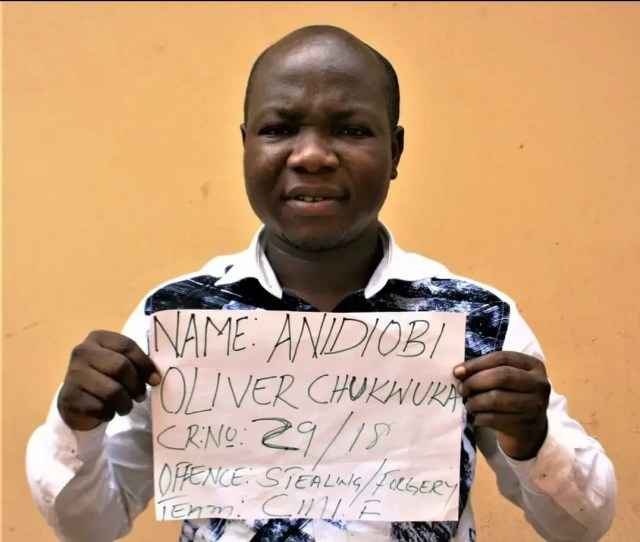 NAME: ANIDIOBI
OLIVER CHUKWUKA
CR:NO: 29/18
OFFENCE: STEALING/FORGERY
TEAM: